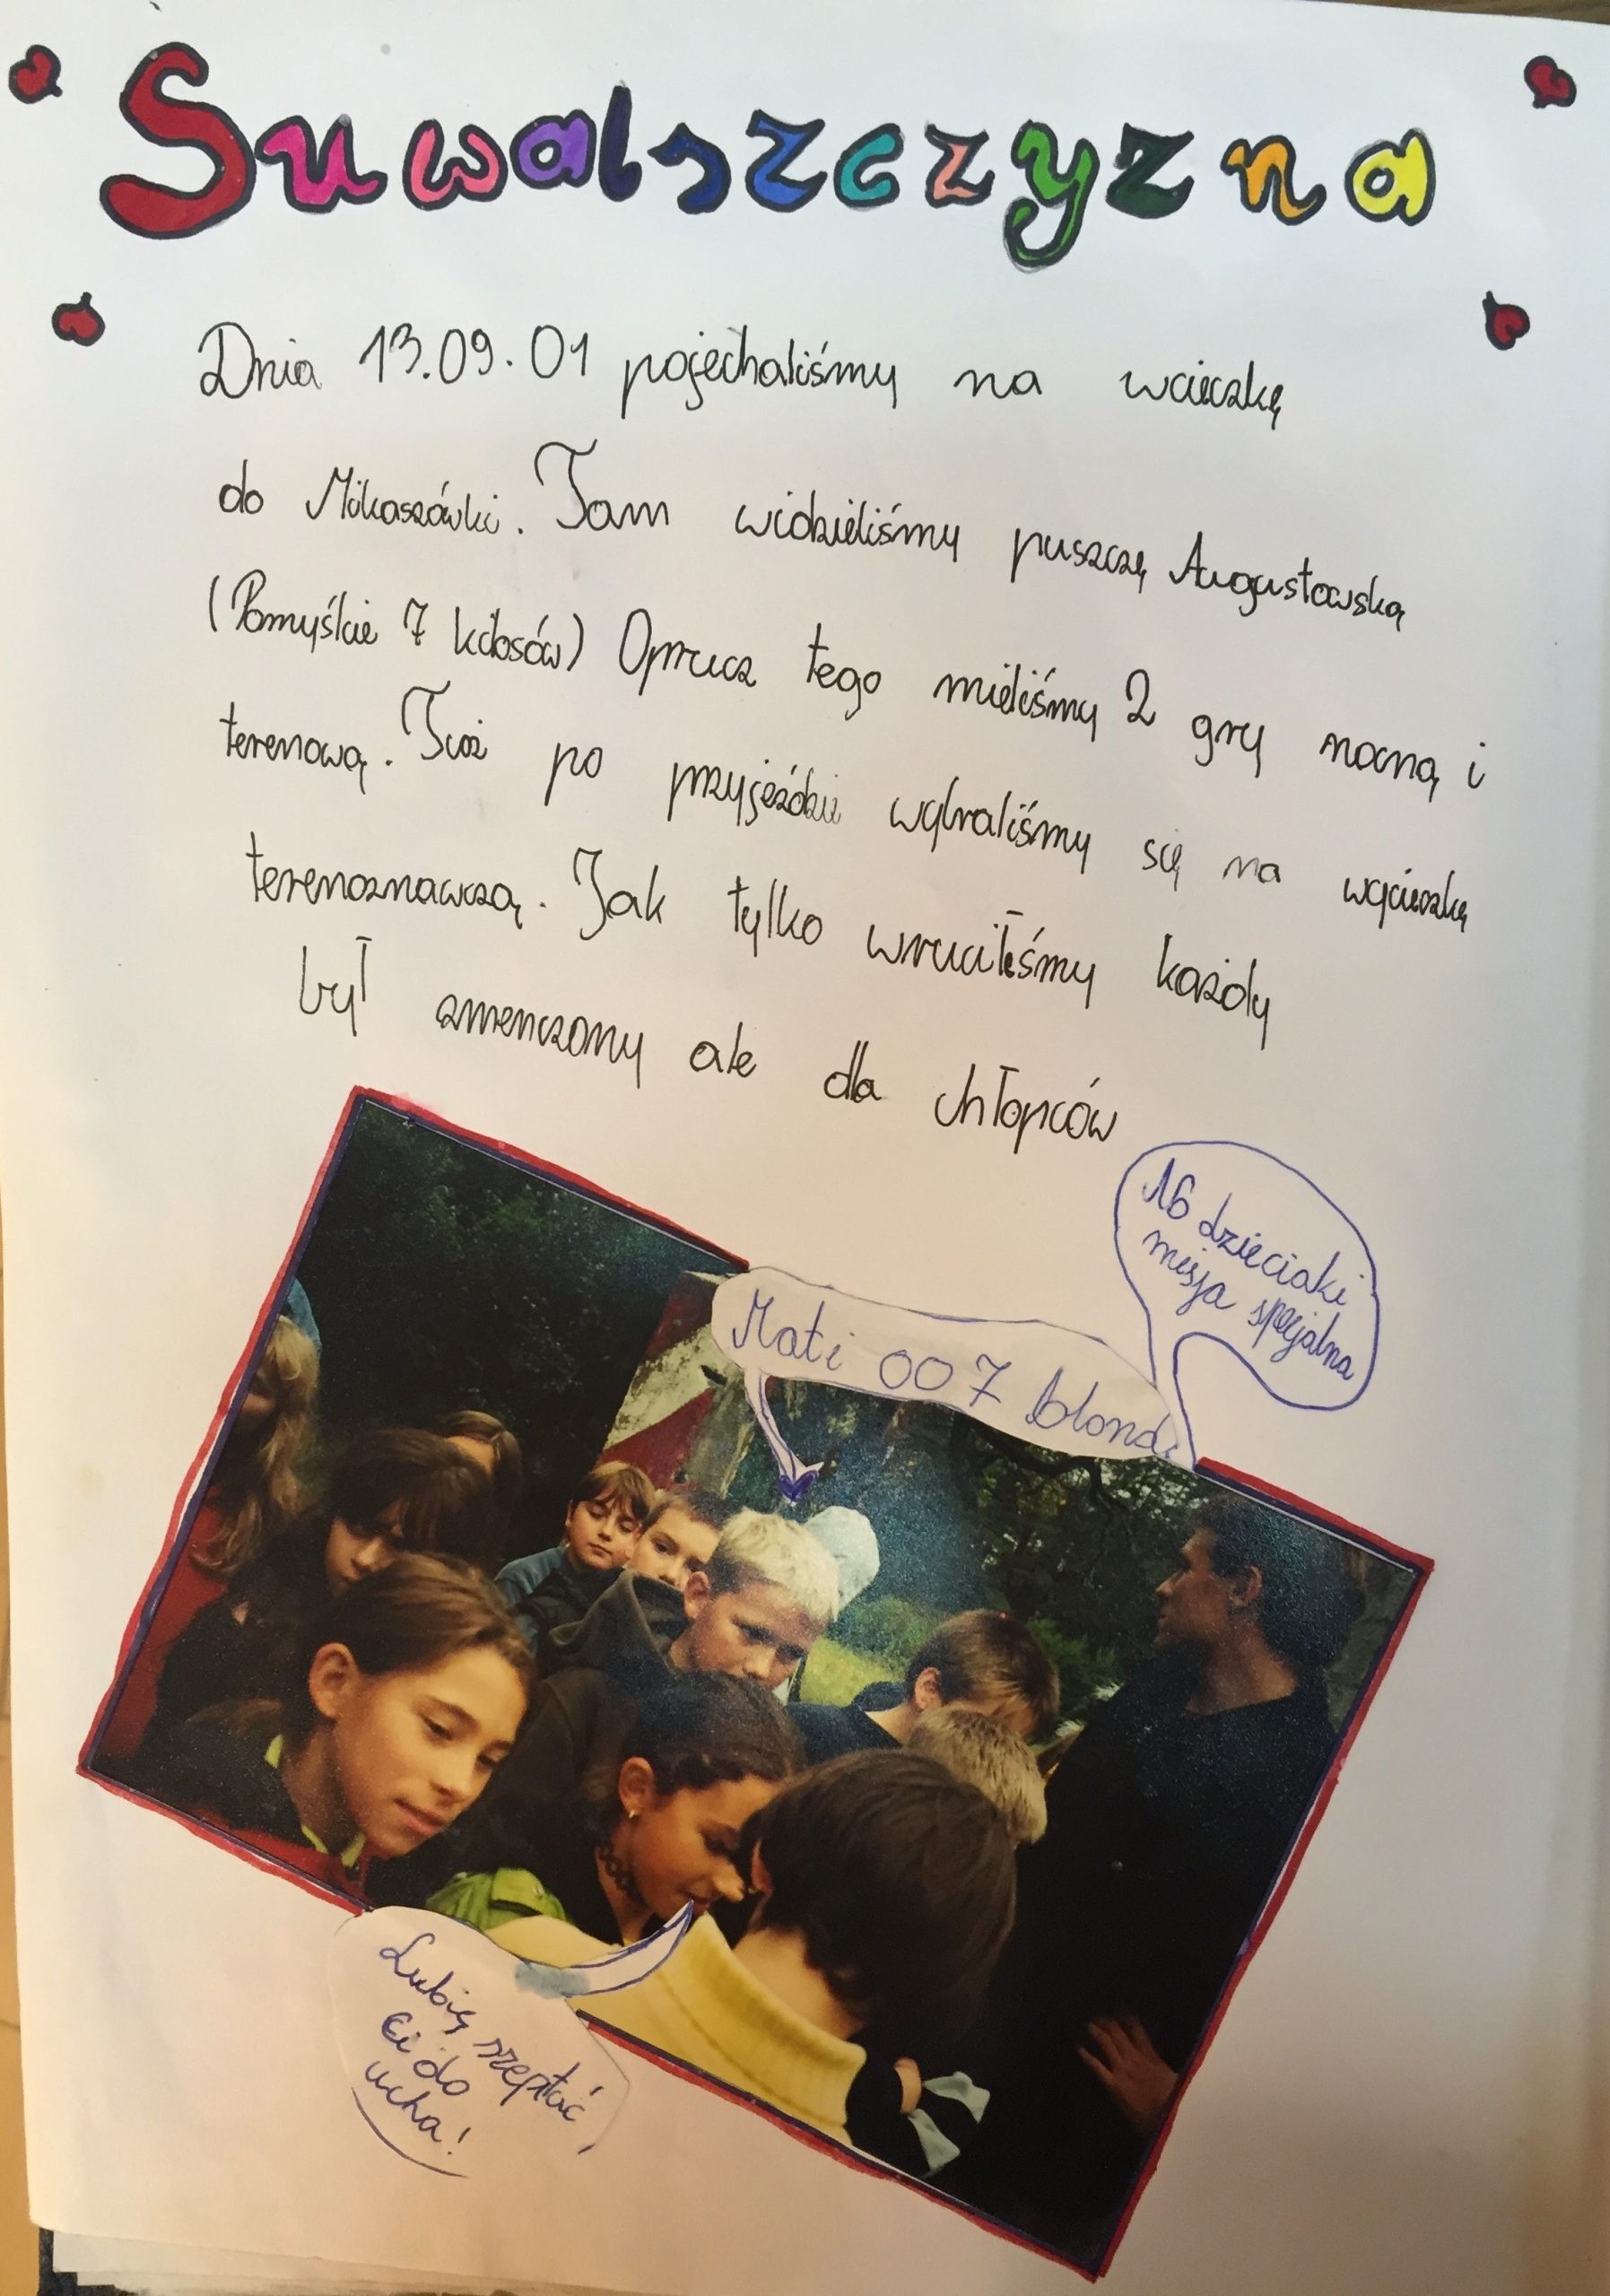 Suwalszczyzna
Dnia 13.09.01 pojechaliśmy na wcieczkę
do Mikaszówki. Tam widzieliśmy puszczę Augustowską
(Pomyślcie 7 kilosów) Oprucz tego mieliśmy 2 gry nocną i
terenową. Tuż po przyjeździe wybraliśmy się na wycieczkę
terenoznawczą. Jak tylko wruciłiśmy każdy
był zmenczony ale dla chłopców
16 dzieciaki
misja specjalna
Mati 007 blond
Lubię szeptać
Ci do
ucha!